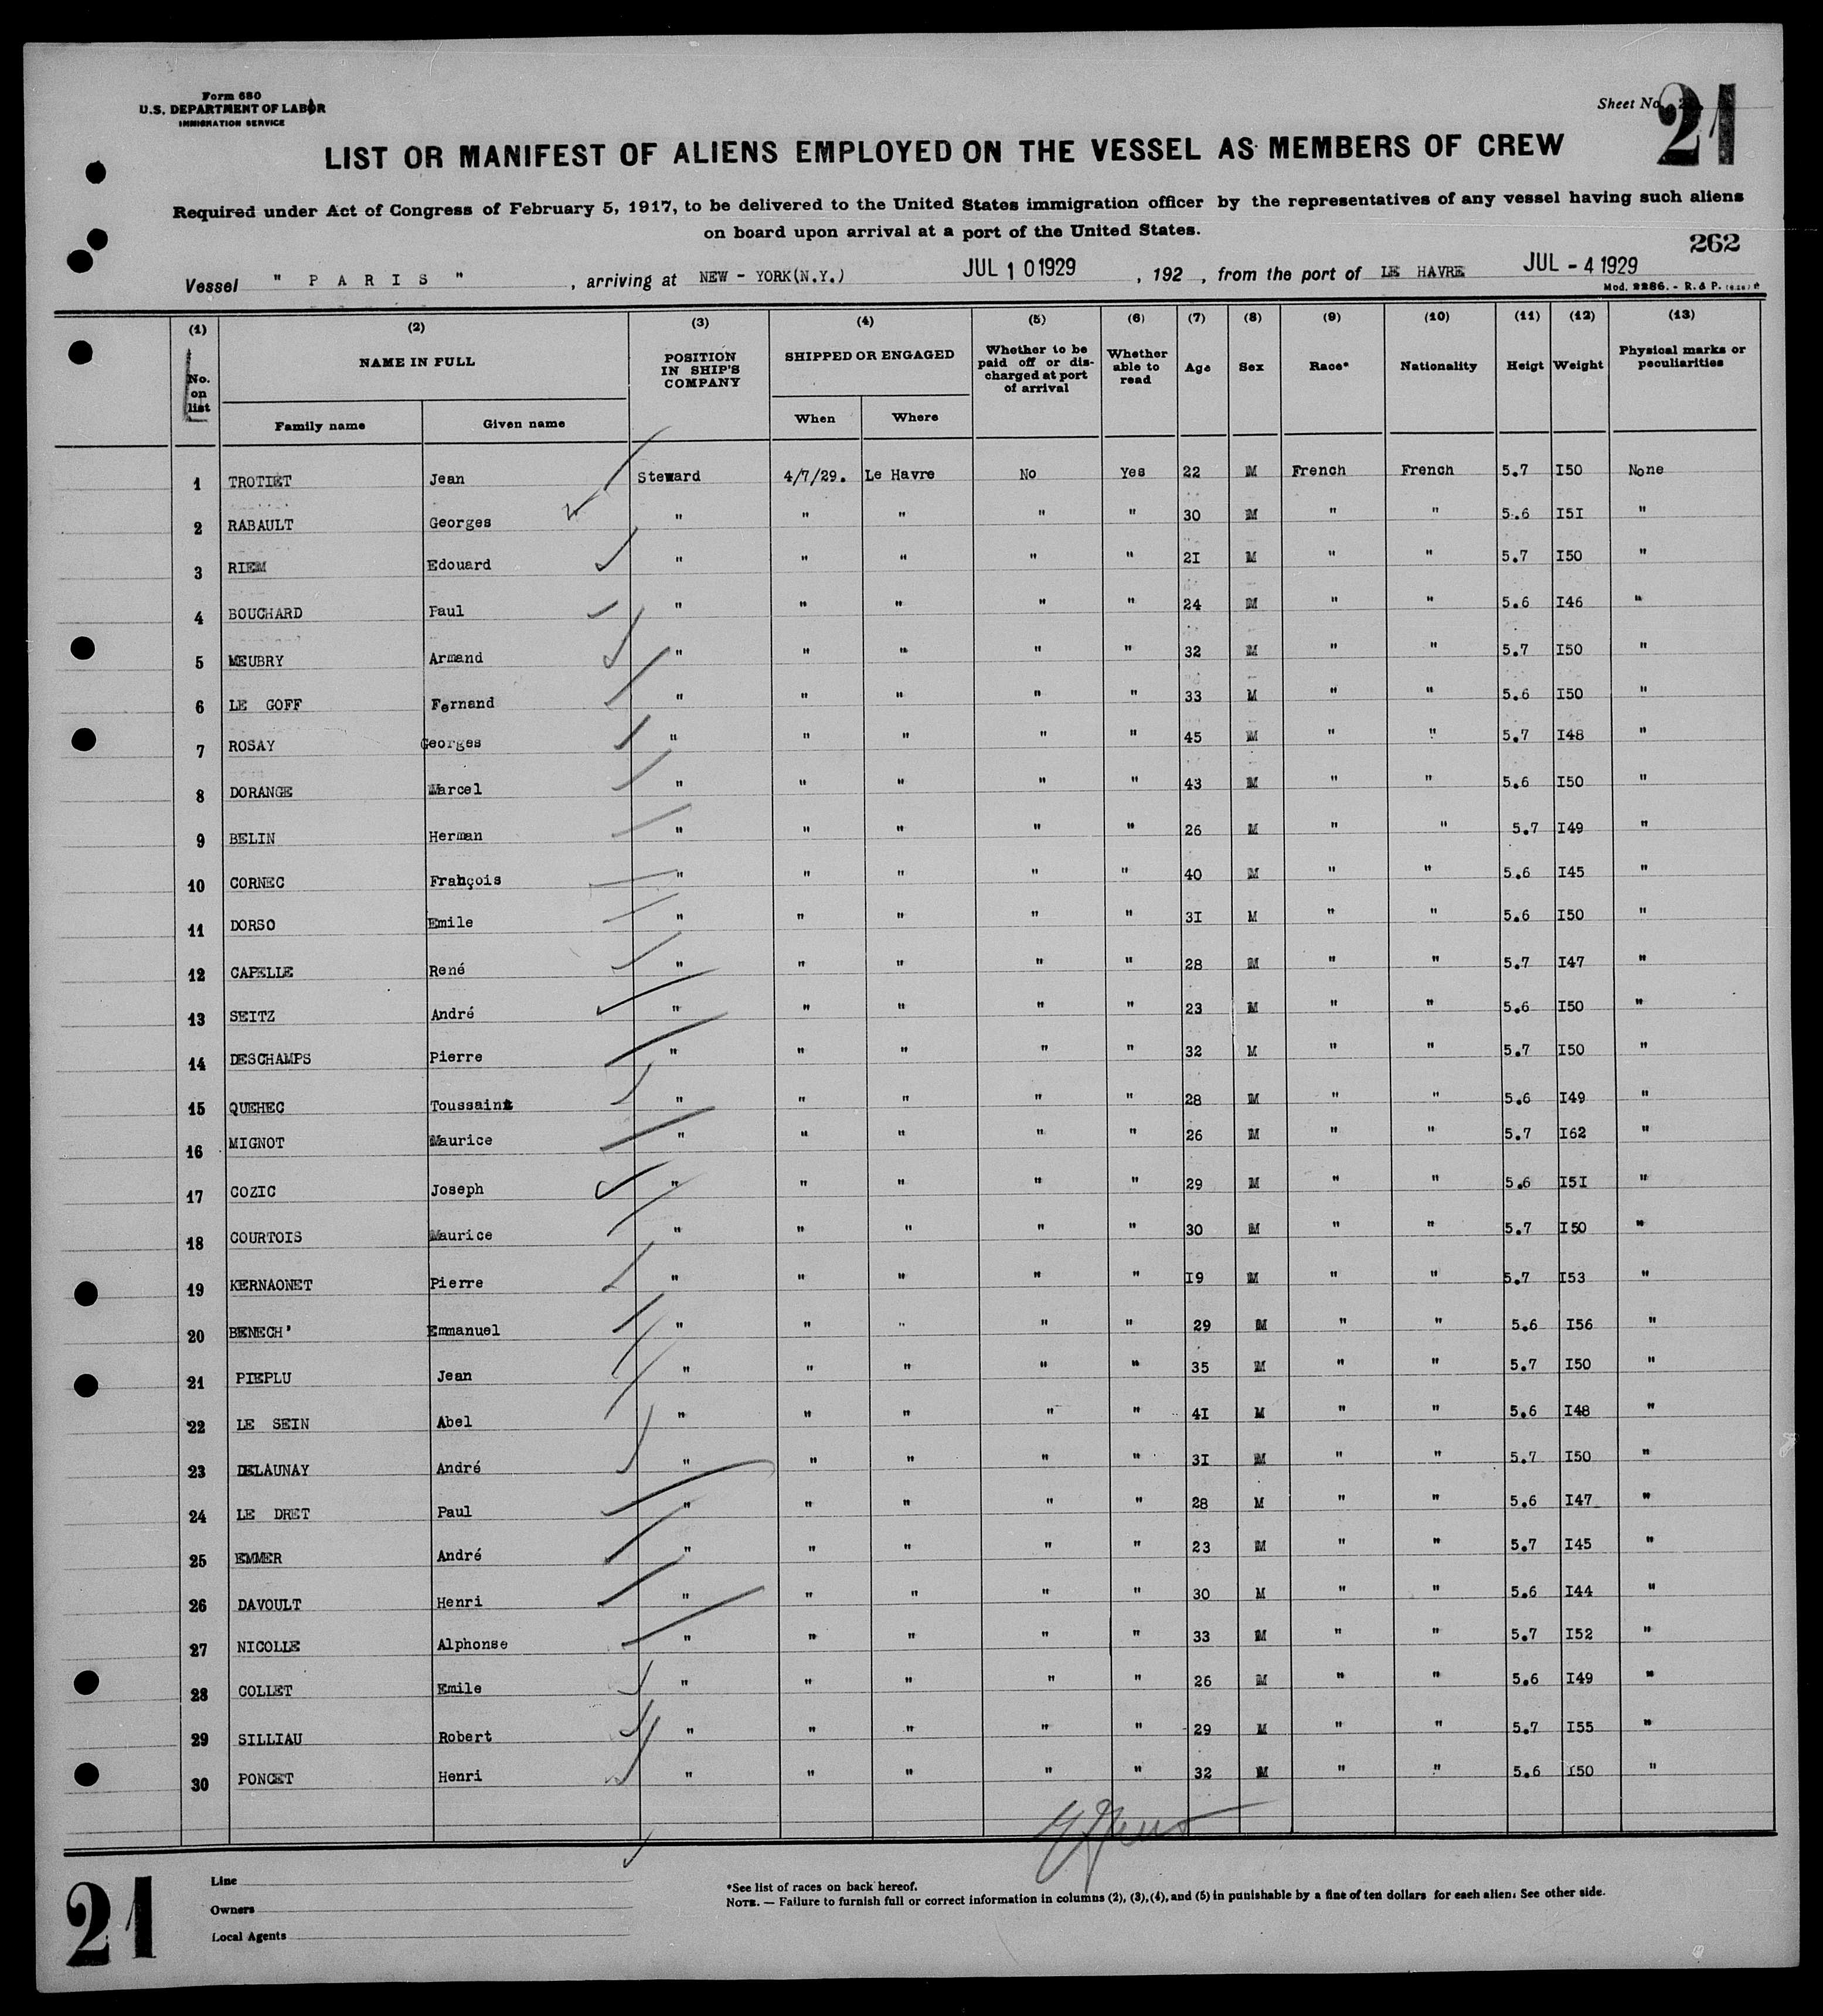 Form 680
U.S. DEPARTMENT OF LABOR
IMMIGRATION SERVICE
Sheet No. 21
LIST OR MANIFEST OF ALIENS EMPLOYED ON THE VESSEL AS MEMBERS OF CREW
Required under Act of Congress of February 5, 1917, to be delivered to the United States immigration officer by the representatives of any vessel having such aliens
on board upon arrival at a port of the United States.
262
Vessel " P A R I S " , arriving at NEW - YORK(N.Y.) JUL 10 1929 , 192 , from the port of LE HAVRE JUL - 4 1929
Mod. 2286. - R. & P.
(1) (2) (3) (4) (5) (6) (7) (8) (9) (10) (11) (12) (13)
No. on list NAME IN FULL POSITION IN SHIP'S COMPANY SHIPPED OR ENGAGED Whether to be paid off or discharged at port of arrival Whether able to read Age Sex Race* Nationality Heigt Weight Physical marks or peculiarities
Family name Given name When Where
1 TROTIET Jean Steward 4/7/29. Le Havre No Yes 22 M French French 5.7 I50 None
2 RABAULT Georges " " " " " 30 M " " 5.6 I5I "
3 RIEM Edouard " " " " " 2I M " " 5.7 I50 "
4 BOUCHARD Paul " " " " " 24 M " " 5.6 I46 "
5 MEUBRY Armand " " " " " 32 M " " 5.7 I50 "
6 LE GOFF Fernand " " " " " 33 M " " 5.6 I50 "
7 ROSAY Georges " " " " " 45 M " " 5.7 I48 "
8 DORANGE Marcel " " " " " 43 M " " 5.6 I50 "
9 BELIN Herman " " " " " 26 M " " 5.7 I49 "
10 CORNEC François " " " " " 40 M " " 5.6 I45 "
11 DORSO Emile " " " " " 3I M " " 5.6 I50 "
12 CAPELLE René " " " " " 28 M " " 5.7 I47 "
13 SEITZ André " " " " " 23 M " " 5.6 I50 "
14 DESCHAMPS Pierre " " " " " 32 M " " 5.7 I50 "
15 QUEHEC Toussaint " " " " " 28 M " " 5.6 I49 "
16 MIGNOT Maurice " " " " " 26 M " " 5.7 I62 "
17 COZIC Joseph " " " " " 29 M " " 5.6 I5I "
18 COURTOIS Maurice " " " " " 30 M " " 5.7 I50 "
19 KERNAONET Pierre " " " " " I9 M " " 5.7 I53 "
20 BENECH' Emmanuel " " " " " 29 M " " 5.6 I56 "
21 PIEPLU Jean " " " " " 35 M " " 5.7 I50 "
22 LE SEIN Abel " " " " " 4I M " " 5.6 I48 "
23 DELAUNAY André " " " " " 3I M " " 5.7 I50 "
24 LE DRET Paul " " " " " 28 M " " 5.6 I47 "
25 EMMER André " " " " " 23 M " " 5.7 I45 "
26 DAVOULT Henri " " " " " 30 M " " 5.6 I44 "
27 NICOLLE Alphonse " " " " " 33 M " " 5.7 I52 "
28 COLLET Emile " " " " " 26 M " " 5.6 I49 "
29 SILLIAU Robert " " " " " 29 M " " 5.7 I55 "
30 PONCET Henri " " " " " 32 M " " 5.6 I50 "
21
Line
Owners
Local Agents
*See list of races on back hereof.
NOTE. — Failure to furnish full or correct information in columns (2), (3), (4), and (5) in punishable by a fine of ten dollars for each alien. See other side.